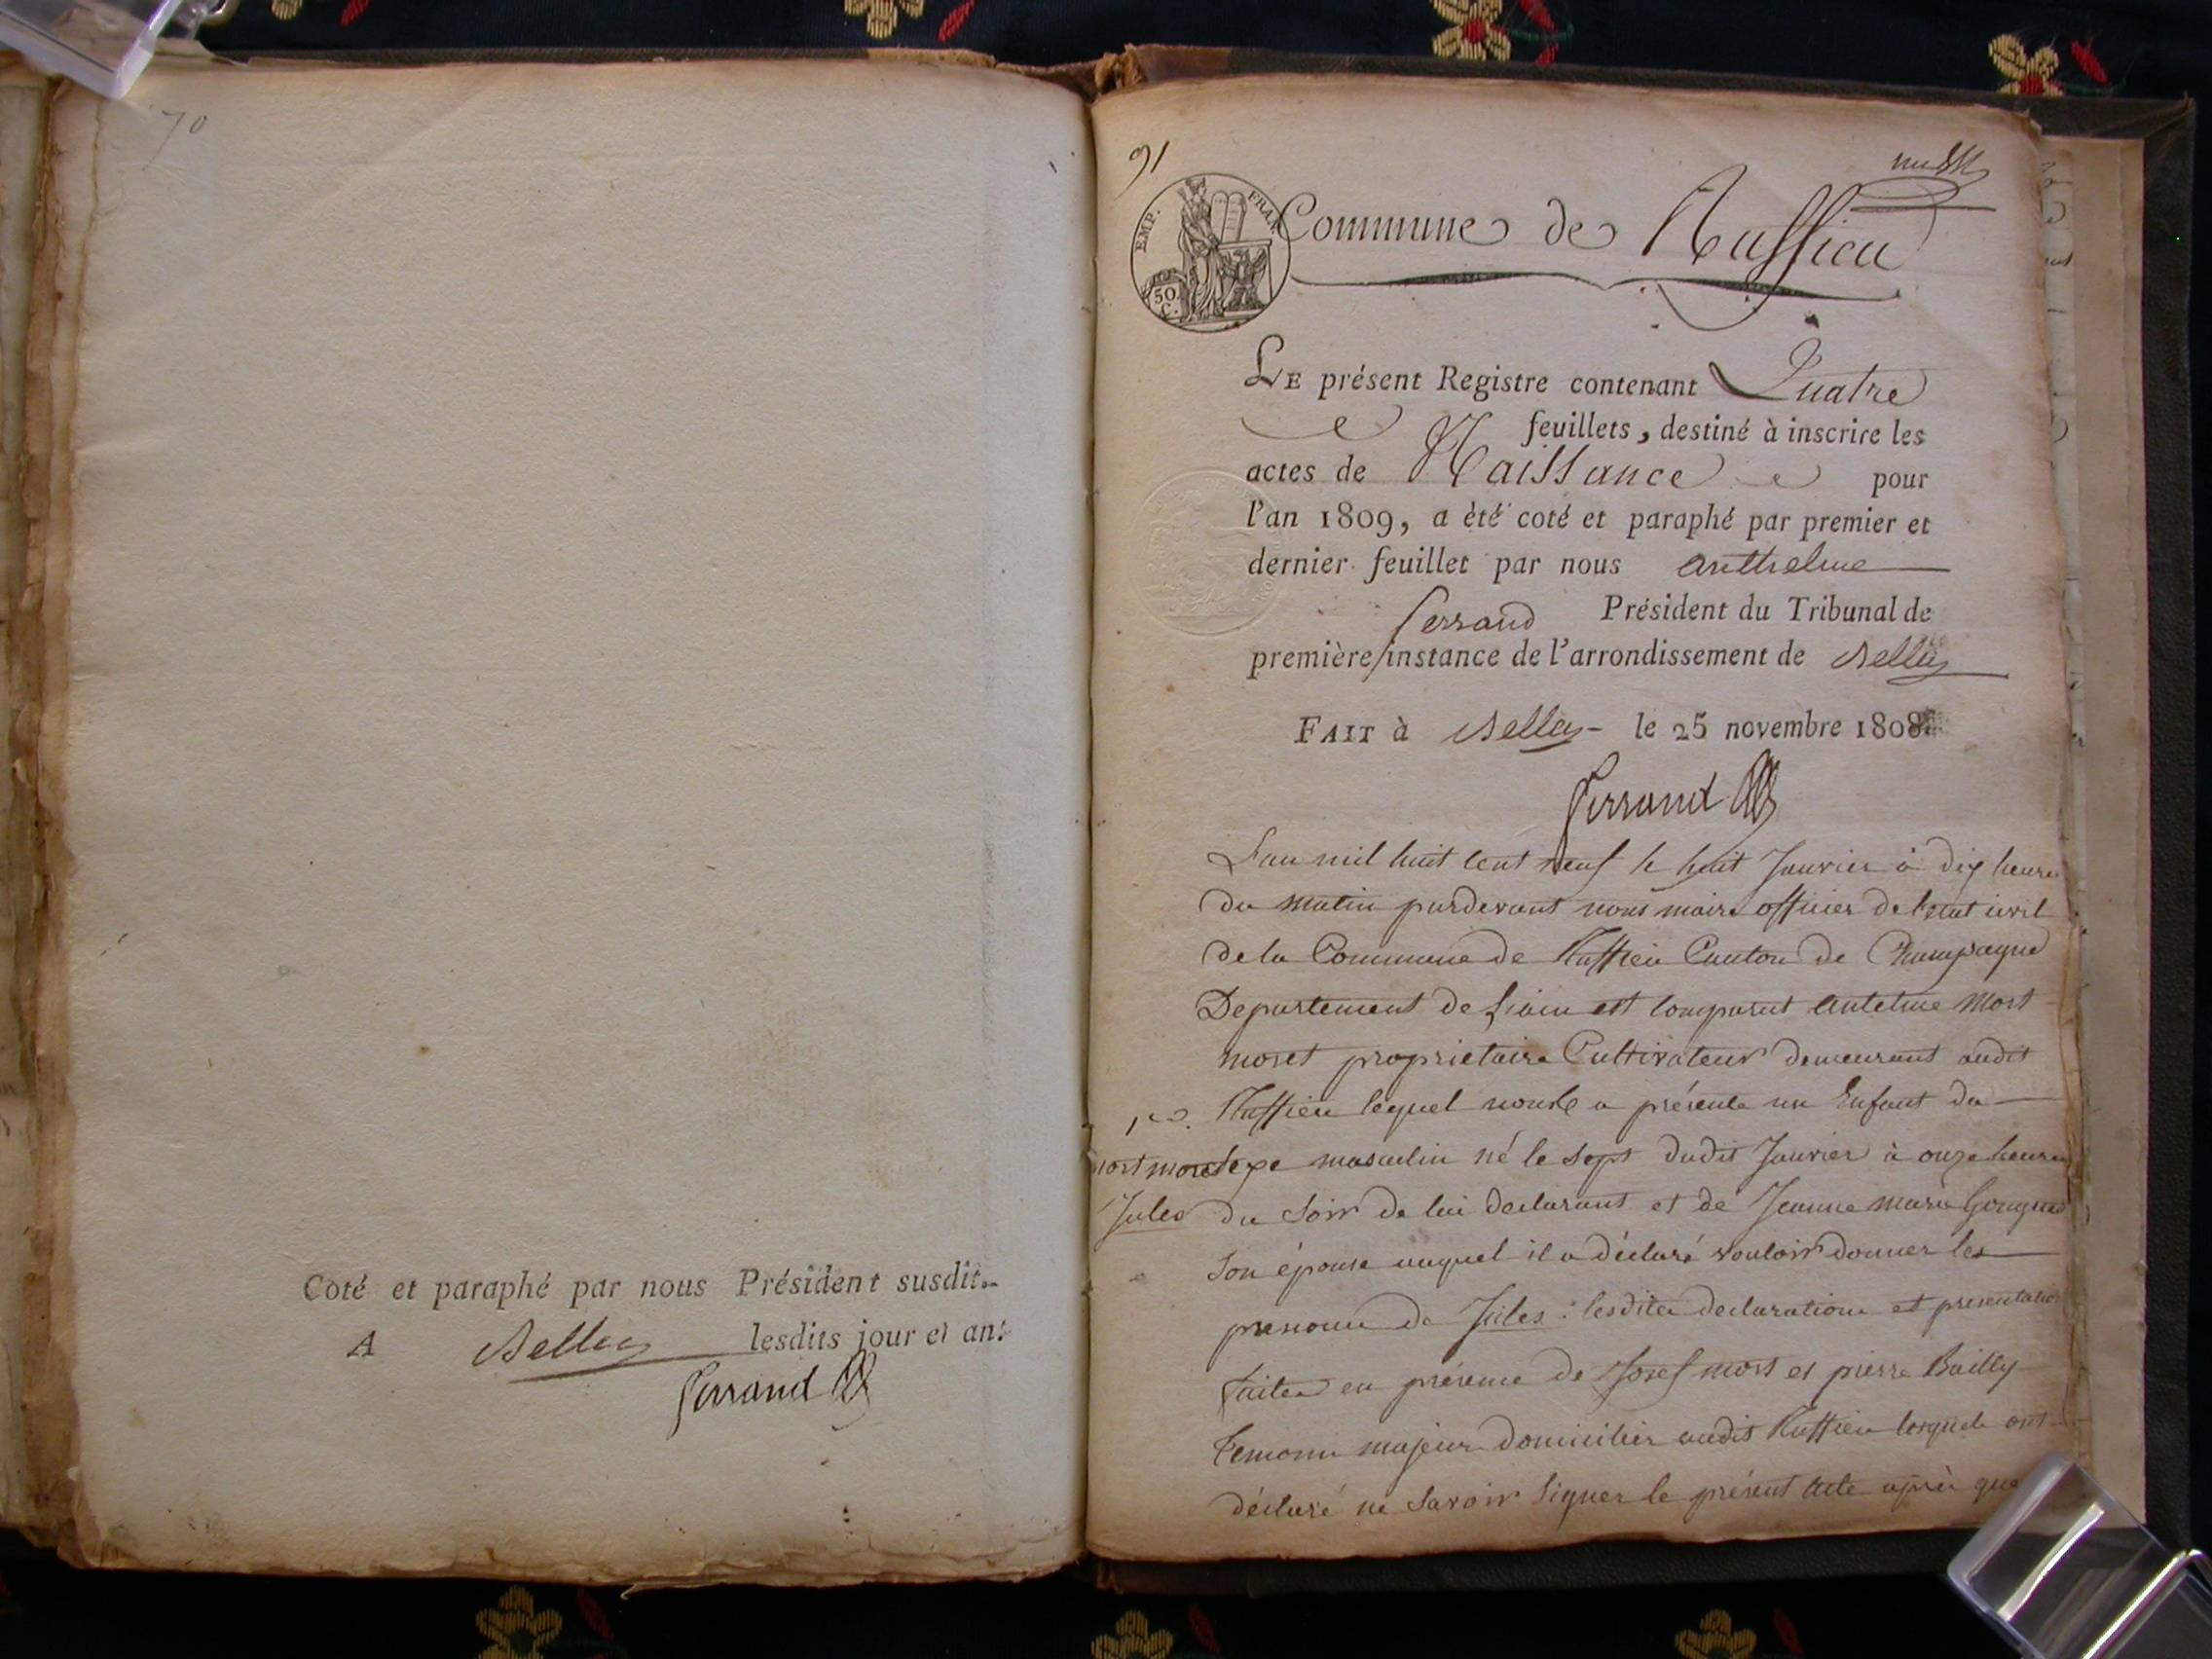 70
Coté et paraphé par nous Président susdit.
A Belley lesdits jour et an.
Ferrand
91
EMP. FRAN.
50 C.
Commune de Ruffieu
LE présent Registre contenant Quatre
feuillets, destiné à inscrire les
actes de Naissance pour
l'an 1809, a été coté et paraphé par premier et
dernier feuillet par nous anthelme
ferrand Président du Tribunal de
première instance de l'arrondissement de Belley
FAIT à Belley le 25 novembre 1808
Ferrand
L'an mil huit cent neuf le huit Janvier à dix heures
du matin pardevant nous maire officier de l'etat civil
de la Commune de Ruffieu Canton de Champagne
Departement de Liain est comparut antelme Mort
moret proprietaire Cultivateur demeurant audit
Ruffieu lequel nous a présenté un Enfant du
mort moret
Jules
sexe masculin né le sept dudit Janvier à onze heures
du soir de lui declarant et de Jeanne marie
son épouse auquel il a déclaré vouloir donner les
prenoms de Jules : lesdites declaration et presentation
faites en présence de Josef mort et pierre Bailly
temoins majeurs domiciliés audit Ruffieu lesquels ont
déclaré ne savoir signer le présent acte après que